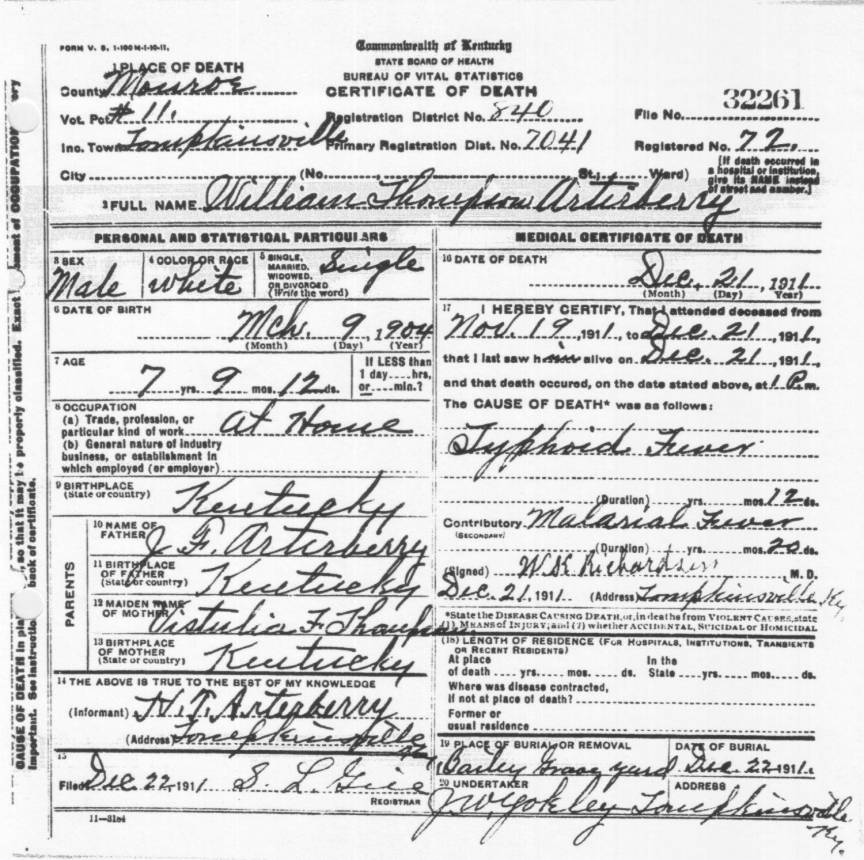 FORM V. S. 1-100M-1-10-11.
Commonwealth of Kentucky
STATE BOARD OF HEALTH
BUREAU OF VITAL STATISTICS
CERTIFICATE OF DEATH
1 PLACE OF DEATH
County Monroe
Vot. Pct # 11. Registration District No. 840 File No. 32261
Inc. Town Tompkinsville Primary Registration Dist. No. 7041 Registered No. 72.
City (No. St.; Ward) [If death occurred in a hospital or institution, give its NAME instead of street and number.]
2 FULL NAME William Thompson Arterberry
PERSONAL AND STATISTICAL PARTICULARS
3 SEX Male
4 COLOR OR RACE White
5 SINGLE, MARRIED, WIDOWED, OR DIVORCED (Write the word) Single
6 DATE OF BIRTH
Mch. 9, 1904
(Month) (Day) (Year)
7 AGE
7 yrs. 9 mos. 12 ds.
If LESS than 1 day....hrs, or....min.?
8 OCCUPATION
(a) Trade, profession, or particular kind of work At Home
(b) General nature of industry business, or establishment in which employed (or employer)
9 BIRTHPLACE (State or country) Kentucky
PARENTS
10 NAME OF FATHER J. F. Arterberry
11 BIRTHPLACE OF FATHER (State or country) Kentucky
12 MAIDEN NAME OF MOTHER F. Thompson
13 BIRTHPLACE OF MOTHER (State or country) Kentucky
14 THE ABOVE IS TRUE TO THE BEST OF MY KNOWLEDGE
(Informant) N. T. Arterberry
(Address Tompkinsville Ky.
15
Filed Dec. 22-1911 S. L.
REGISTRAR
11—3184
MEDICAL CERTIFICATE OF DEATH
16 DATE OF DEATH
Dec. 21, 1911
(Month) (Day) (Year)
17 I HEREBY CERTIFY, That I attended deceased from
Nov. 19, 1911, to Dec. 21, 1911,
that I last saw him alive on Dec. 21, 1911,
and that death occured, on the date stated above, at 1 P.m.
The CAUSE OF DEATH* was as follows:
Typhoid Fever
(Duration) yrs. mos. 12 ds.
Contributory Malarial Fever
(SECONDARY)
(Duration) yrs. mos. 20 ds.
(Signed) W. K Richardson M. D.
Dec. 21, 1911 (Address) Tompkinsville Ky
*State the DISEASE CAUSING DEATH, or, in deaths from VIOLENT CAUSES, state (1) MEANS of INJURY; and (2) whether ACCIDENTAL, SUICIDAL or HOMICIDAL
(18) LENGTH OF RESIDENCE (FOR HOSPITALS, INSTITUTIONS, TRANSIENTS OR RECENT RESIDENTS)
At place of death yrs. mos. ds. In the State yrs. mos. ds.
Where was disease contracted, If not at place of death?
Former or usual residence
19 PLACE OF BURIAL OR REMOVAL DATE OF BURIAL
Bailey Grave yard Dec. 22 1911.
20 UNDERTAKER ADDRESS
J W Yokley Tompkinsville Ky.
CAUSE OF DEATH in plai , so that it may be properly classified. Exact ment of OCCUPATION ery
important. See instructio back of certificate.